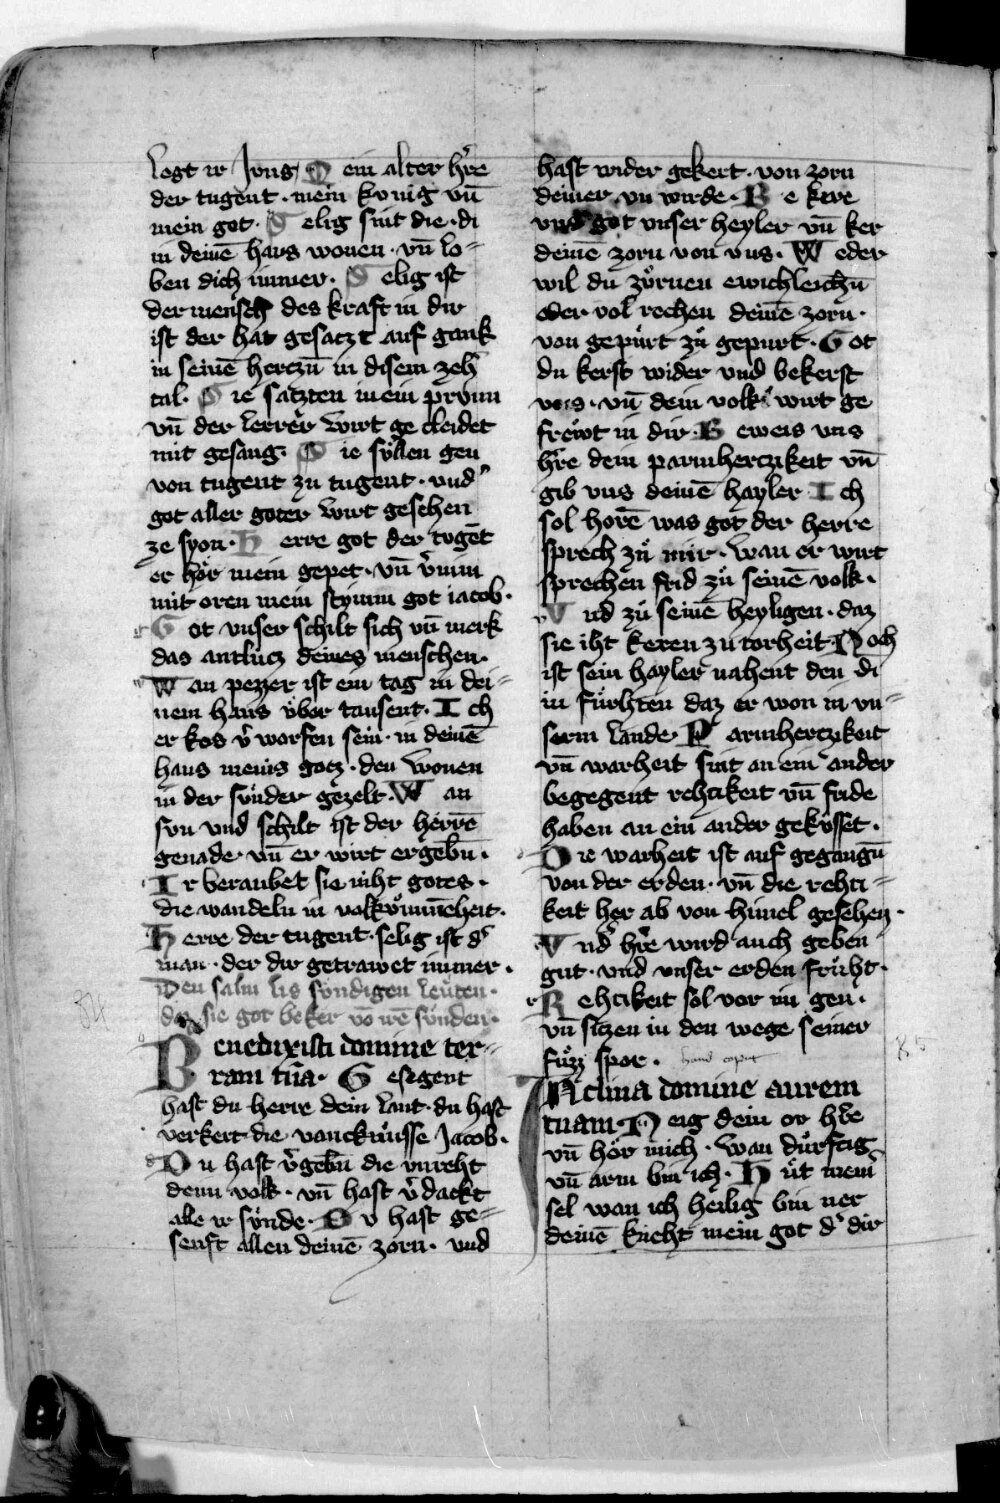 legt ir Jung D ein alter hr̄e
der tugent · mein kunig vn̄
mein got · S elig sint die · di
in deinē haus wonen · vn̄ lo=
ben dich immer · S elig ist
der mensch des kraft in dir
ist der hat gesaczt auf gank
in seinē herczn̄ in disem zeh̄
tal · S ie saczten in ein
vn̄ der lerrer wirt ge cleidet
mit gesang · S ie sullen gen
von tugent zu tugent · vnd
got aller goter wirt gesehen
ze syon · H erre got der tugēt
er hör mein gepet · vn̄ v̓nim
mit oren mein stymm got iacob ·
G ot vnser schilt sich vn̄ merk
das antlucz deines menschen ·
W an pezzer ist ein tag in dei=
nem haus über tausent · I ch
er kos v̓ worfen sein · in deinē
haus meins gotz · den wonen
in der sünder gezelt · W an
sun vnd schilt ist der herrē
genade vn̄ er wirt ergebn̄ ·
I r beraubet sie niht gotes ·
die wandeln in volkümm̄eheit ·
H erre der tugent · selig ist d̓
man · der dir getrawet immer ·
Den salm lis sundigen leuten ·
daz sie got beker vō irē sunden ·
B enedixisti domine ter=
ram tūa · G esegent
hast du herre dein lant · du hast
verkert die vancknüsse Jacob ·
D u hast v̓gebn̄ die vnreht
deim volk · vn̄ hast v̓ daekt
alle ir sünde · D v hast ge=
senft allen deinē zorn · vnd
hast wider gekert · von zorn
deiner vn wirde · B e kere
vns got vnser heyler vn̄ ker
deinē zorn von vns · W eder
wil du zürnen ewichleichn̄
oder vol rechen deinē zorn ·
von gepürt zü gepurt · G ot
du kerst wider vnd bekerst
vns · vn̄ dein volk wirt ge
frewt in dir · B eweis vns
hr̄e dein parmherczikeit vn̄
gib vns deinē hayler I ch
sol horē was got der herre
sprech zü mir · wan er wirt
sprechen frid zü seinē volk ·
V nd zü seinē heyligen · daz
sie iht keren zu torheit · D och
ist sein hayler nahent den di
in fürhten daz er won in vn=
serm lande · P armherczikeit
vn̄ warheit sint an ein ander
begegent rehtikeit vn̄ fride
haben an ein ander geküsset ·
D ie warheit ist auf gegangn̄
von der erden · vn̄ die rehti=
keit her ab von himel gesehen ·
V nd hr̄e wird auch geben
gut · vnd vnser erden früht ·
R ehtikeit sol vor im gen ·
vn̄ siczen in den wege seiner
füzz spor ·
INclina domine aurem
tuam · N eig dein or hr̄e
vn̄ hör mich · wan dürftig
vn̄ arm bin ich · H üt mein̄
sel wan ich heilig bin ner
deinē kneht mein got d̓ dir
84
85